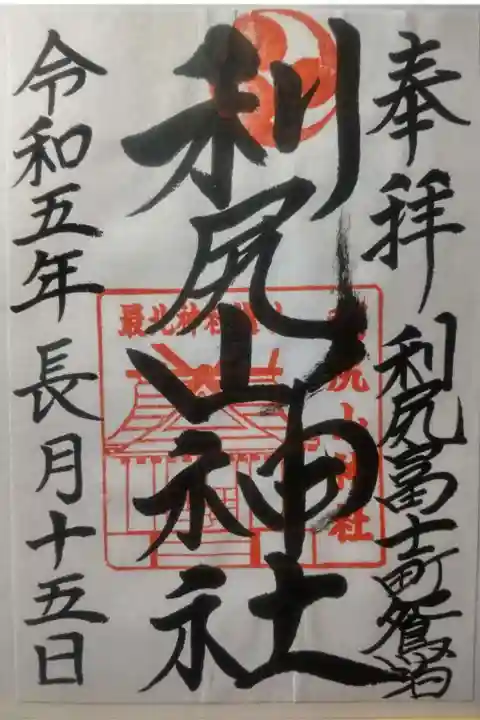 奉拝 利尻富士町鴛泊
利尻山神社
最北神社
利尻山神社
令和五年長月十五日